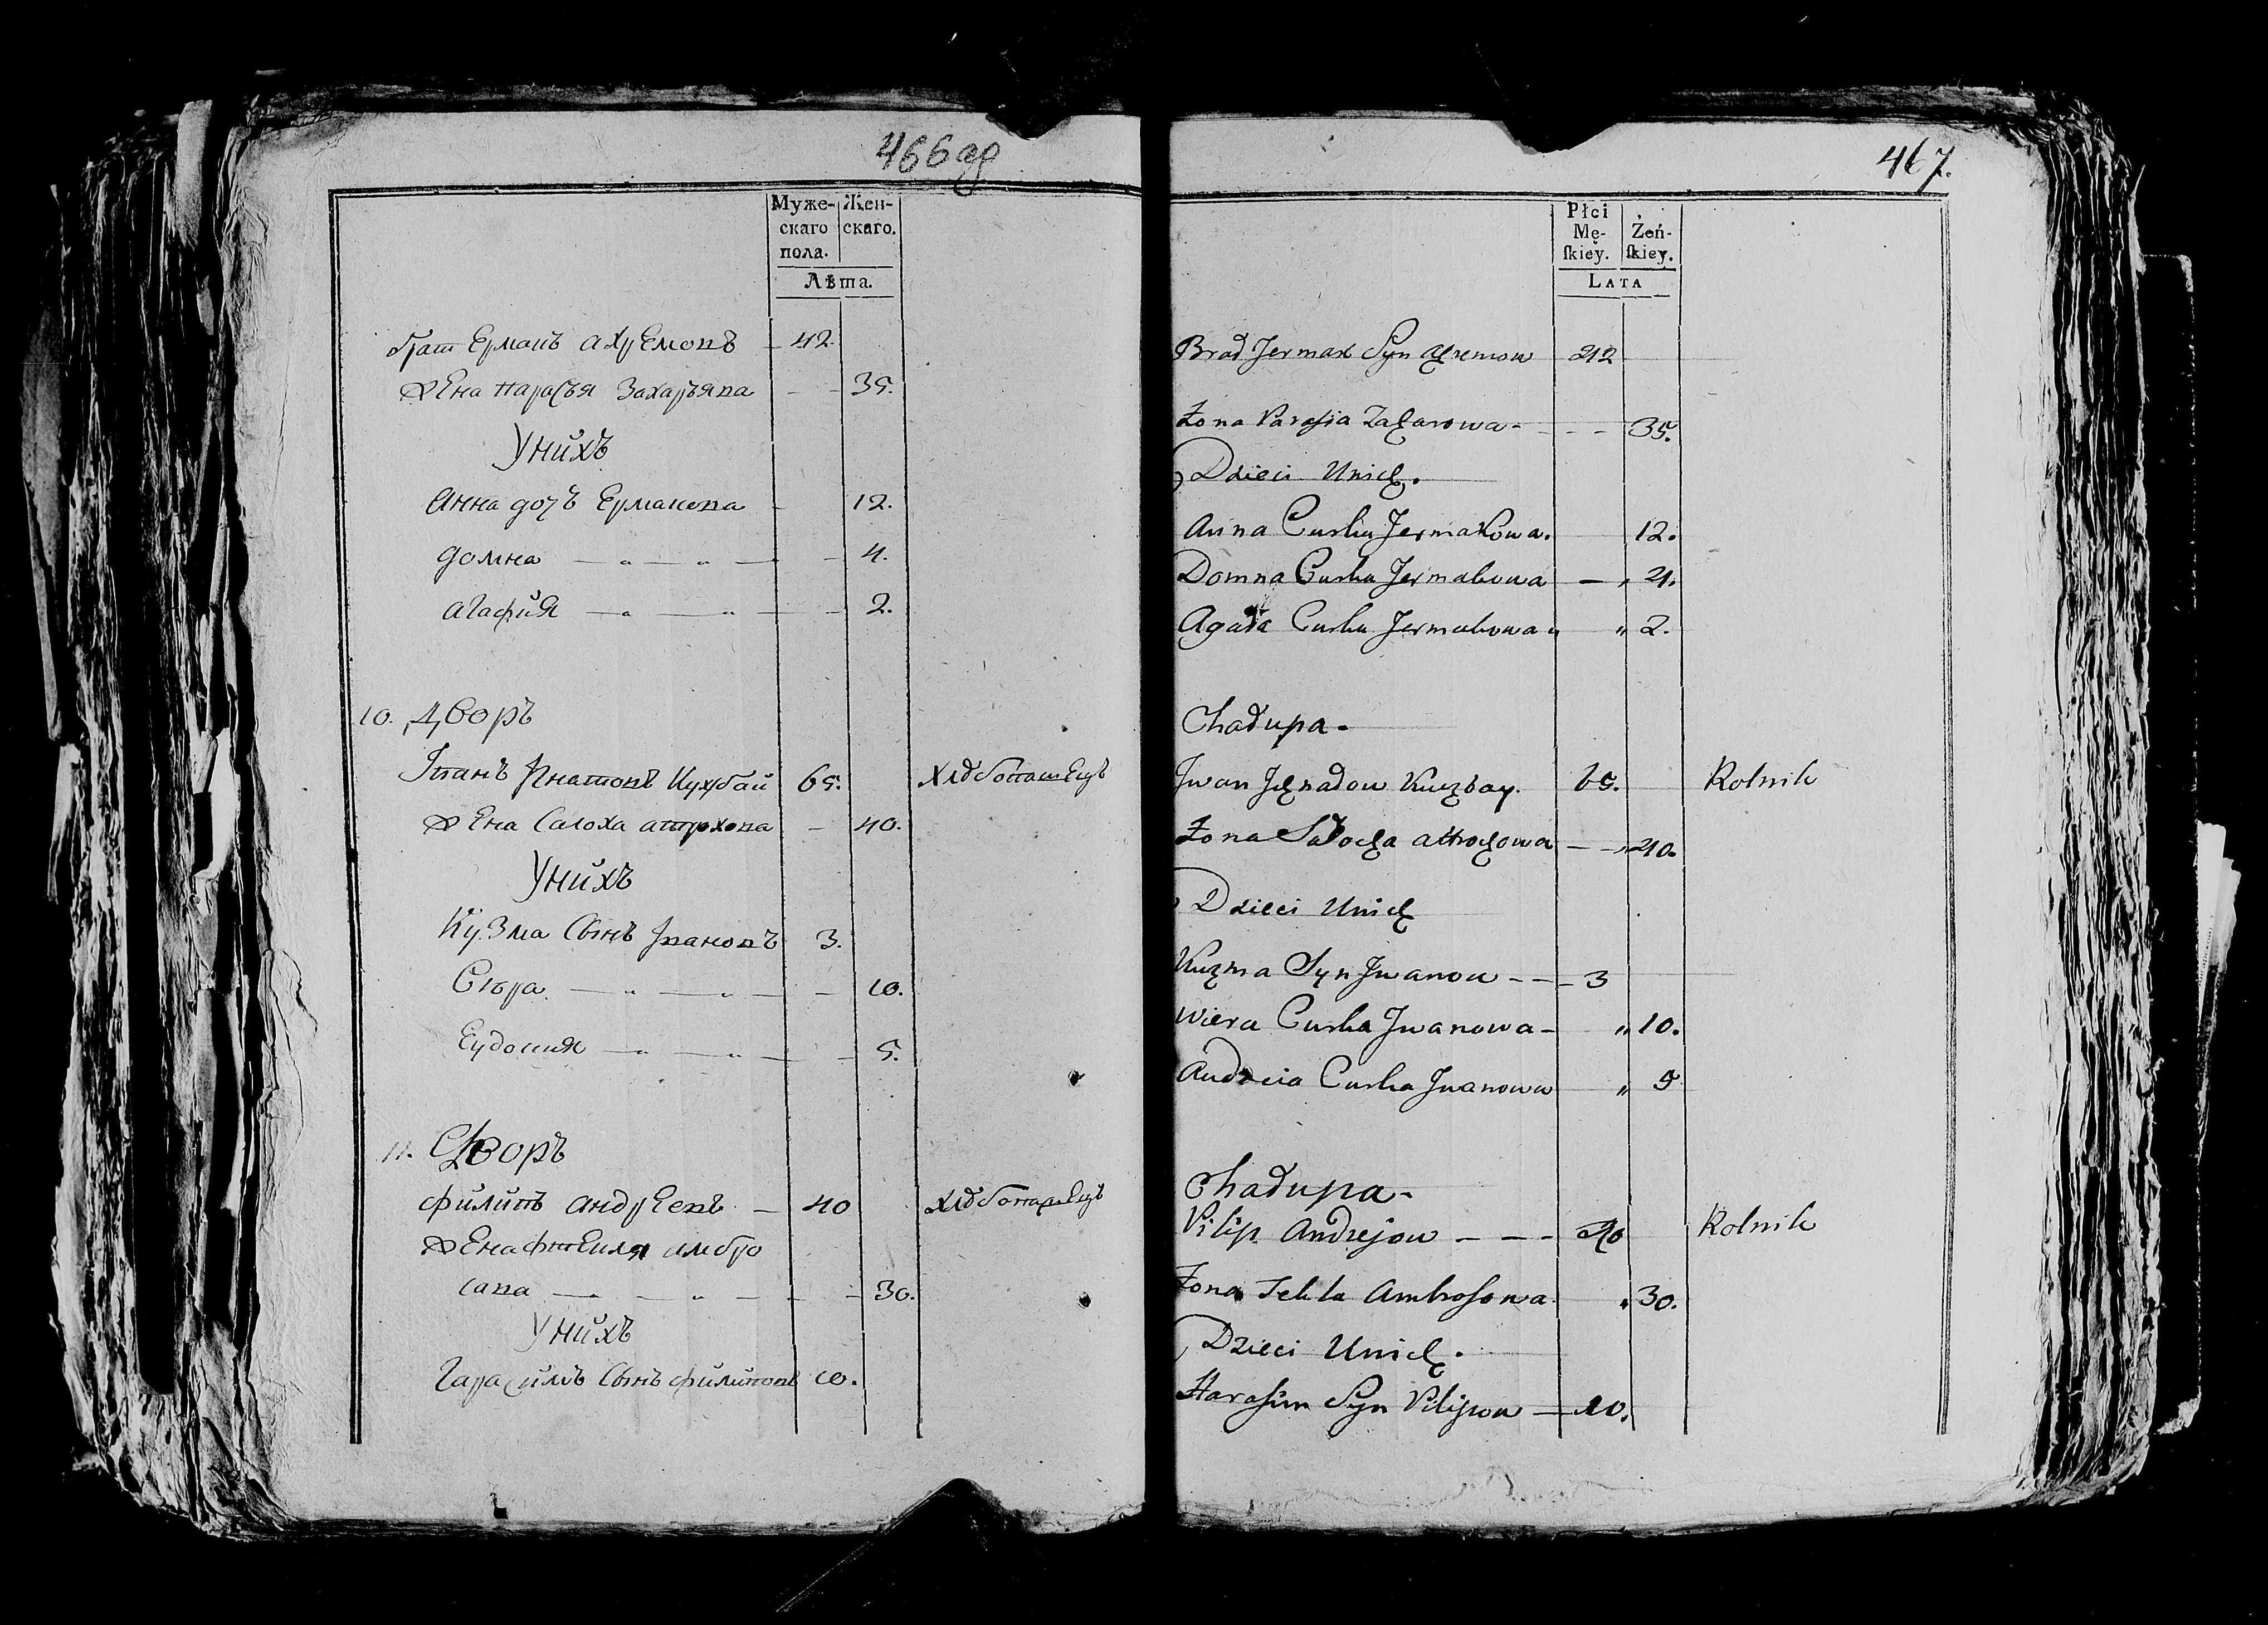 466 об
Муже- Жен-
скаго скаго.
пола.
Лѣта.
брат Ермакъ ахремовъ — 42.
жена парасья Захарьява — 35.
Унихъ
Анна дочъ Ермакова — 12.
домна — „ — „ — 4.
агафия — „ — „ — 2.
10. Дворъ
Iванъ Игнатовъ Кухбай 65. хлѣбопашецъ
жена Салоха атрохова — 40.
Унихъ
Кузма Сынъ Iвановъ 3.
Вѣра — „ — „ — 10.
Еудокия — „ — „ — 5.
11. Дворъ
филипъ андреевъ — 40 хлѣбопашецъ
жена фтекля амбро
сава — „ — 30.
Унихъ
Гарасимъ Сынъ филиповъ 10.
467.
Płci
Mę- Żeń-
ſkiey. ſkiey.
LATA
Brad Jermak Syn Achremow 42
Żona Parasia Zacharowa - - - 35.
Dzieci Unich.
Anna Curka Jermakowa. 12.
Domna Curka Jermakowa — „ 4.
Agata Curka Jermakowa „ „ 2.
Chałupa -
Jwan Jhnatow Kuchbay. 65. Rolnik
Żona Sałocha attrochowa — 40.
Dzieci Unich
Kuzma Syn Jwanow - - - 3
Wiera Curka Jwanowa - „ 10.
Audocia Curka Jwanowa „ 5
Chałupa -
Pilip Andrejow - - - 40 Rolnik
Żona Tekla Ambrosowa „ 30.
Dzieci Unich.
Harasim Syn Pilipow — 10.